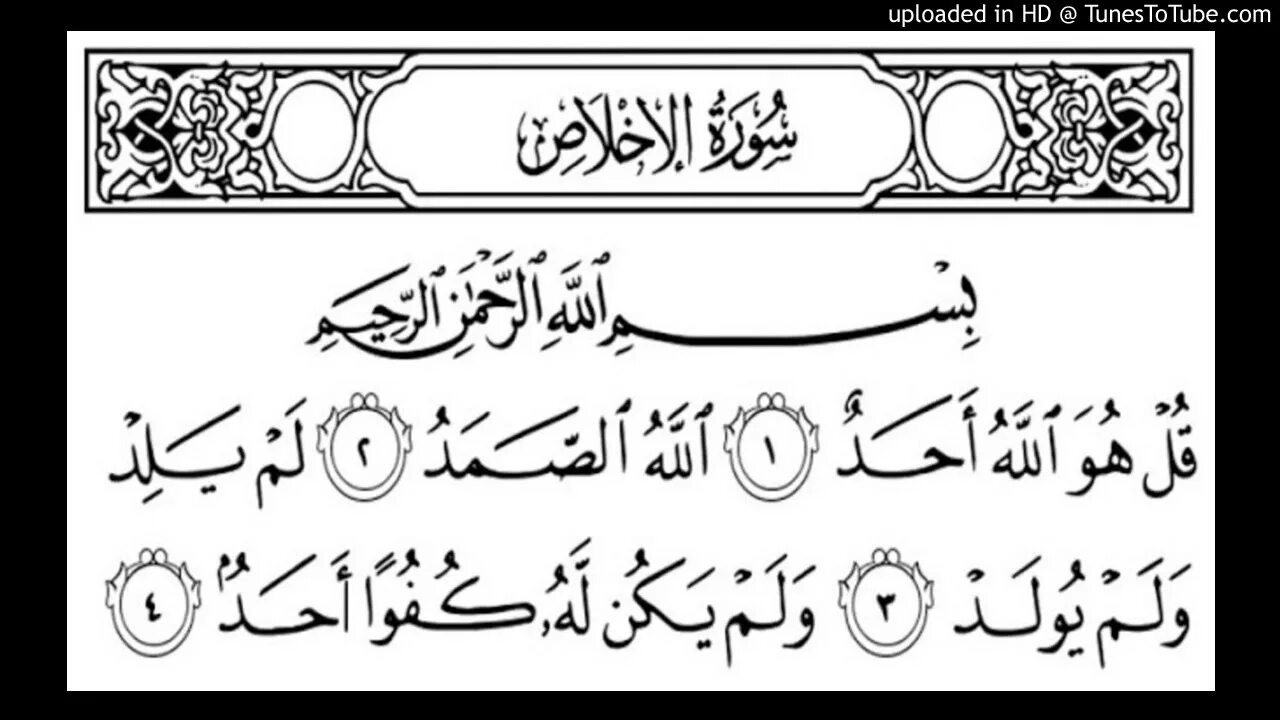 uploaded in HD @ TunesToTube.com
سُورَةُ الإِخْلَاصِ
بِسْمِ ٱللَّهِ ٱلرَّحْمَٰنِ ٱلرَّحِيمِ
قُلْ هُوَ ٱللَّهُ أَحَدٌ ١ ٱللَّهُ ٱلصَّمَدُ ٢ لَمْ يَلِدْ
وَلَمْ يُولَدْ ٣ وَلَمْ يَكُن لَّهُۥ كُفُوًا أَحَدٌۢ ٤